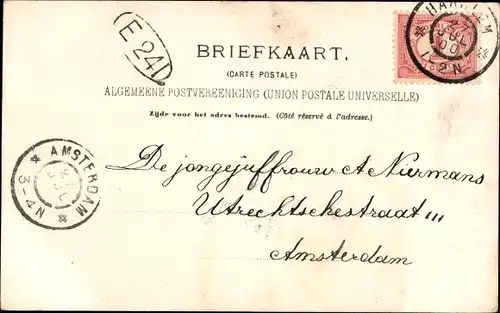 (E 24)
HAARLEM
JUL
00
1-2N
BRIEFKAART.
(CARTE POSTALE)
ALGEMEENE POSTVEREENIGING (UNION POSTALE UNIVERSELLE)
Zijde voor het adres bestemd. (Côté réservé à l'adresse.)
AMSTERDAM
JUL
3-4N
De jongejuffrouw A Niermans
Utrechtschestraat 111
Amsterdam